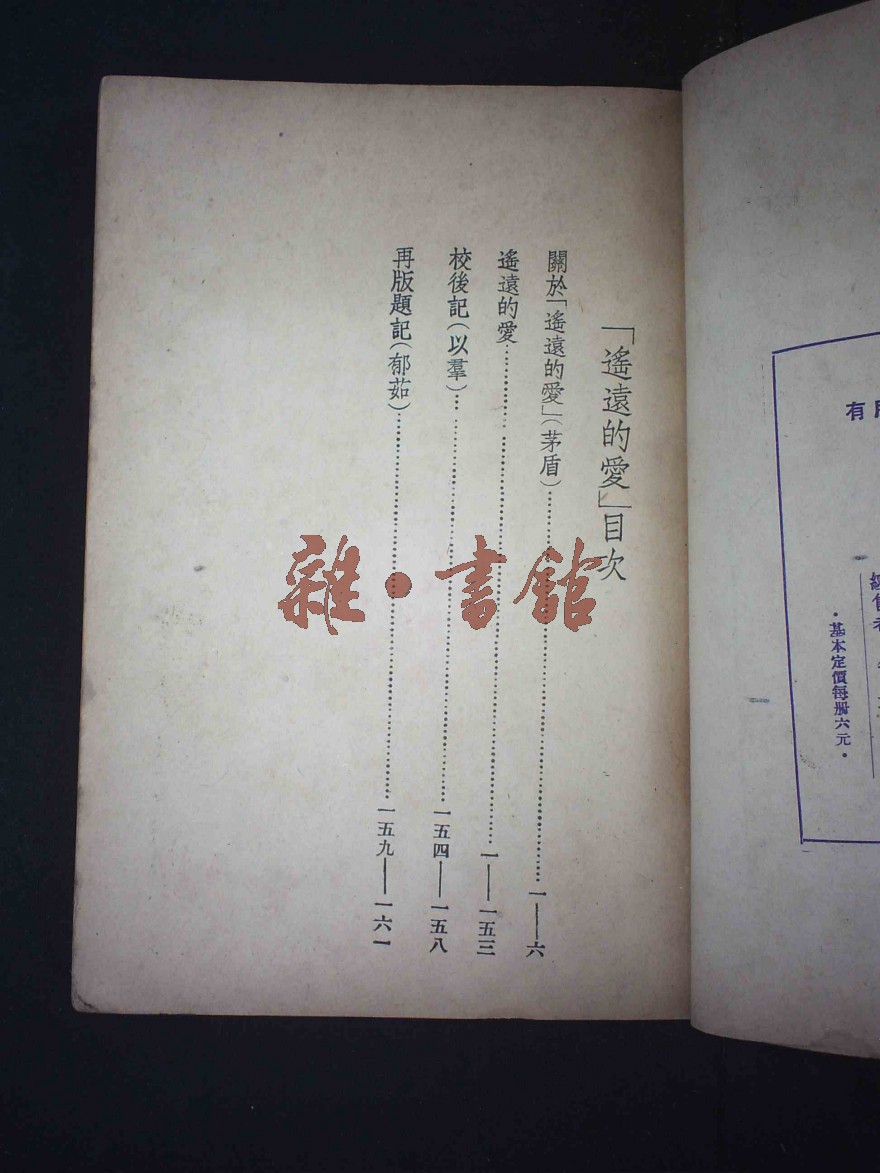 「遙遠的愛」目次
關於「遙遠的愛」(茅盾)……一——六
遙遠的愛……一——一五三
校後記(以羣)……一五四——一五八
再版題記(郁茹)……一五九——一六一
雜·書館
有
·基本定價每册六元·